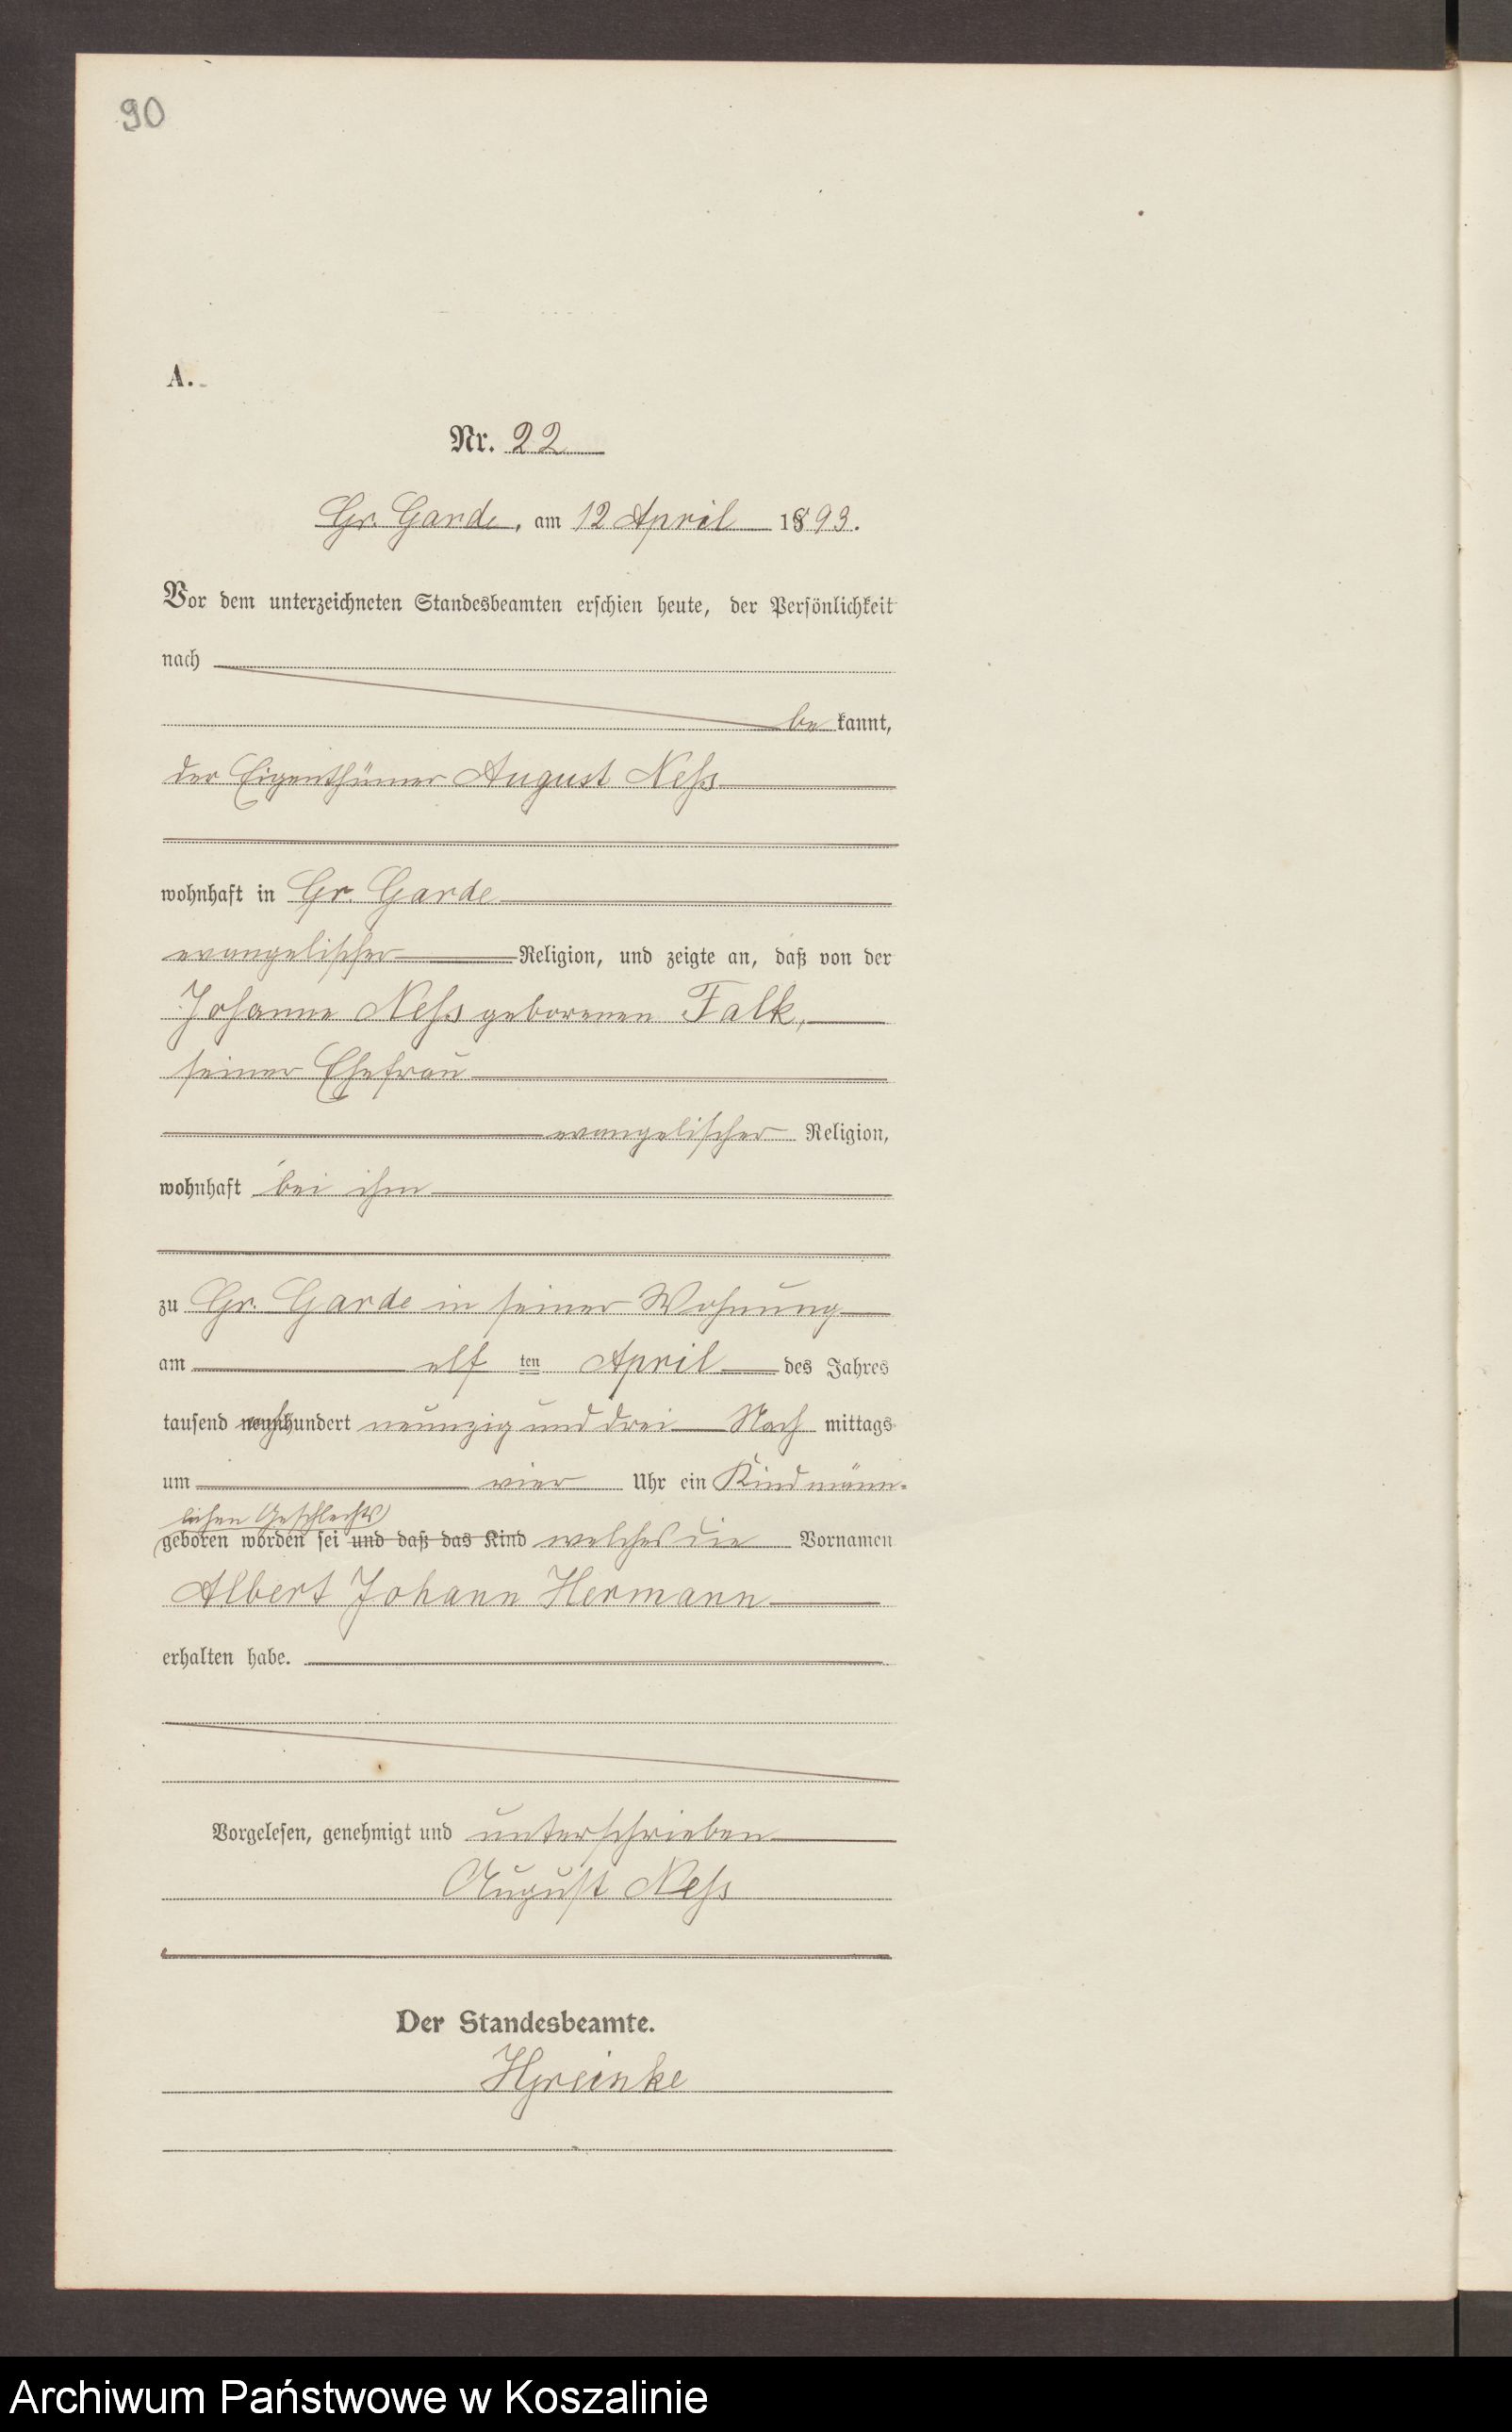 90
A.
Nr. 22
Gr. Garde, am 12 April 1893.
Vor dem unterzeichneten Standesbeamten erschien heute, der Persönlichkeit
nach
be kannt,
der Eigenthümer August Neß
wohnhaft in Gr. Garde
evangelischer Religion, und zeigte an, daß von der
Johanne Neß geborenen Falk,
seiner Ehefrau
evangelischer Religion,
wohnhaft bei ihm
zu Gr. Garde in seiner Wohnung
am elf ten April des Jahres
tausend achthundert neunzig und drei Nach mittags
um vier Uhr ein Kind männ-
lichen Geschlechts
geboren worden sei und daß das Kind welches die Vornamen
Albert Johann Hermann
erhalten habe.
Vorgelesen, genehmigt und unterschrieben
August Neß
Der Standesbeamte.
Archiwum Państwowe w Koszalinie